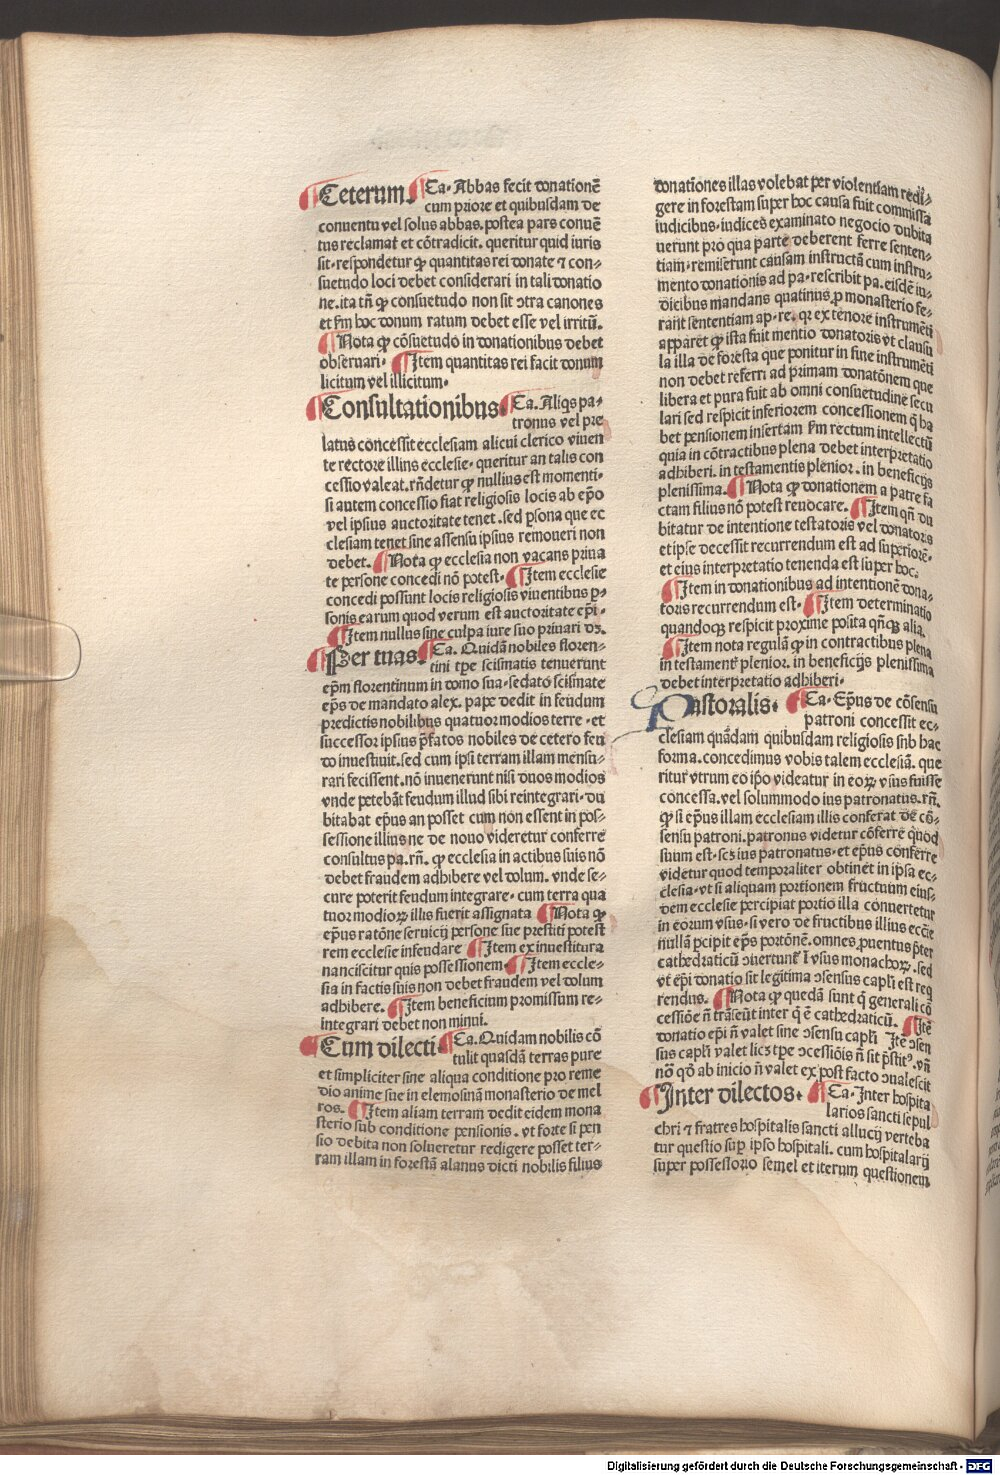 Ceterum. Ca. Abbas fecit donationē
cum priore et quibusdam de
conuentu vel solus abbas. postea pars conuē
tus reclamat et cōtradicit. queritur quid iuris
sit. respondetur ꝙ quantitas rei donate ⁊ con⸗
suetudo loci debet considerari in tali donatio
ne. ita tn̄ ꝙ consuetudo non sit ↄtra canones
et fm hoc donum ratum debet esse vel irritū.
Nota ꝙ cōsuetudo in donationibus debet
obseruari. Item quantitas rei facit donum
licitum vel illicitum.
Consultationibus. Ca. Aliqs pa⸗
tronus vel pre
latus concessit ecclesiam alicui clerico viuen
te rectore illius ecclesie. queritur an talis con
cessio valeat. rn̄detur ꝙ nullius est momenti.
si autem concessio fiat religiosis locis ab ep̄o
vel ipsius auctoritate tenet. sed ꝑsona que ec
clesiam tenet sine assensu ipsius remoueri non
debet. Nota ꝙ ecclesia non vacans priua
te persone concedi nō potest. Item ecclesie
concedi possunt locis religiosis viuentibus ꝑ⸗
sonis earum quod verum est auctoritate ep̄i.
Item nullus sine culpa iure suo priuari dꝫ.
Per tuas. Ca. Quidā nobiles floren⸗
tini tp̄e scismatis tenuerunt
ep̄m florentinum in domo sua. sedato scismate
ep̄s de mandato alex. pape dedit in feudum
predictis nobilibus quatuor modios terre. et
successor ipsius p̄fatos nobiles de cetero feu
do inuestiuit. sed cum ipsi terram illam mensu⸗
rari fecissent. nō inuenerunt nisi duos modios
vnde petebāt feudum illud sibi reintegrari. du
bitabat ep̄us an posset cum non essent in pos⸗
sessione illius ne de nouo videretur conferre
consultus pa. rn̄. ꝙ ecclesia in actibus suis nō
debet fraudem adhibere vel dolum. vnde se⸗
cure poterit feudum integrare. cum terra qua
tuor modioꝝ illis fuerit assignata Nota ꝙ
ep̄us ratōne seruicij persone sue prestiti potest
rem ecclesie infeudare Item ex inuestitura
nanciscitur quis possessionem. Item eccle⸗
sia in factis suis non debet fraudem vel dolum
adhibere. Item beneficium promissum re⸗
integrari debet non minui.
Cum dilecti Ca. Quidam nobilis cō
tulit quasdā terras pure
et simpliciter sine aliqua conditione pro reme
dio anime sue in elemosinā monasterio de mel
ros. Item aliam terram dedit eidem mona
sterio sub conditione pensionis. vt forte si pen
sio debita non solueretur redigere posset ter⸗
ram illam in forestā alanus dicti nobilis filius
donationes illas volebat per violentiam redi⸗
gere in forestam super hoc causa fuit commissa
iudicibus. iudices examinato negocio dubita
uerunt pro qua parte deberent ferre senten⸗
tiam. remiserunt causam instructā cum instru⸗
mento donationis ad pa. rescribit pa. eisdē iu⸗
dicibus mandans quatinus ꝓ monasterio fe⸗
rant sententiam ap. re. qr ex tenore instrumēti
apparet ꝙ ista fuit mentio donatoris vt clausu
la illa de foresta que ponitur in fine instrumēti
non debet referri ad primam donatōnem que
libera et pura fuit ab omni consuetudine secu
lari sed respicit inferiorem concessionem q̄ ha
bet pensionem insertam fm rectum intellectū
quia in cōtractibus plena debet interpretatio
adhiberi. in testamentis plenior. in beneficijs
plenissima. Nota ꝙ donationem a patre fa
ctam filius nō potest reuocare. Item qn̄ du
bitatur de intentione testatoris vel donatoris
et ipse decessit recurrendum est ad superiorē.
et eius interpretatio tenenda est super hoc.
Item in donationibus ad intentionē dona⸗
toris recurrendum est. Item determinatio
quandoqꝫ respicit proxime posita qn̄qꝫ alia.
Item nota regulā ꝙ in contractibus plena
in testament̄ plenior. in beneficijs plenissima
debet interpretatio adhiberi.
Pastoralis. Ca. Ep̄us de cōsensu
patroni concessit ec⸗
clesiam quādam quibusdam religiosis sub hac
forma. concedimus vobis talem ecclesiā. que
ritur vtrum eo ip̄o videatur in eoꝝ vsus fuisse
concessa. vel solummodo ius patronatus. rn̄.
ꝙ si ep̄us illam ecclesiam illis conferat de cō⸗
sensu patroni. patronus videtur cōferre quod
suum est. scꝫ ius patronatus. et ep̄us conferre
videtur quod temporaliter obtinet in ipsa ec⸗
clesia. vt si aliquam portionem fructuum eius⸗
dem ecclesie percipiat portio illa conuertetur
in eorum vsus. si vero de fructibus illius eccīe
nullā ꝑcipit ep̄s portōnē. omnes ꝓuentus p̄ter
cathedraticū ↄuertunt̄ ī vsus monachoꝝ. sed
vt ep̄i donatio sit legitima ↄsensus capl̄i est req
rendus. Nota ꝙ quedā sunt q̄ generali cō
cessiōe n̄ trāseūt inter q̄ ē cathedraticū. Itē
donatio ep̄i n̄ valet sine ↄsensu capl̄i Itē ↄsen
sus capl̄i valet licꝫ tp̄e ↄcessiōis n̄ sit p̄stitꝰ. vn̄
nō qd ab inicio n̄ valet ex post facto ↄualescit
Inter dilectos. Ca. Inter hospita
larios sancti sepul
chri ⁊ fratres hospitalis sancti allucij verteba
tur questio suꝑ ipso hospitali. cum hospitalarij
super possessorio semel et iterum questionem
Digitalisierung gefördert durch die Deutsche Forschungsgemeinschaft - DFG